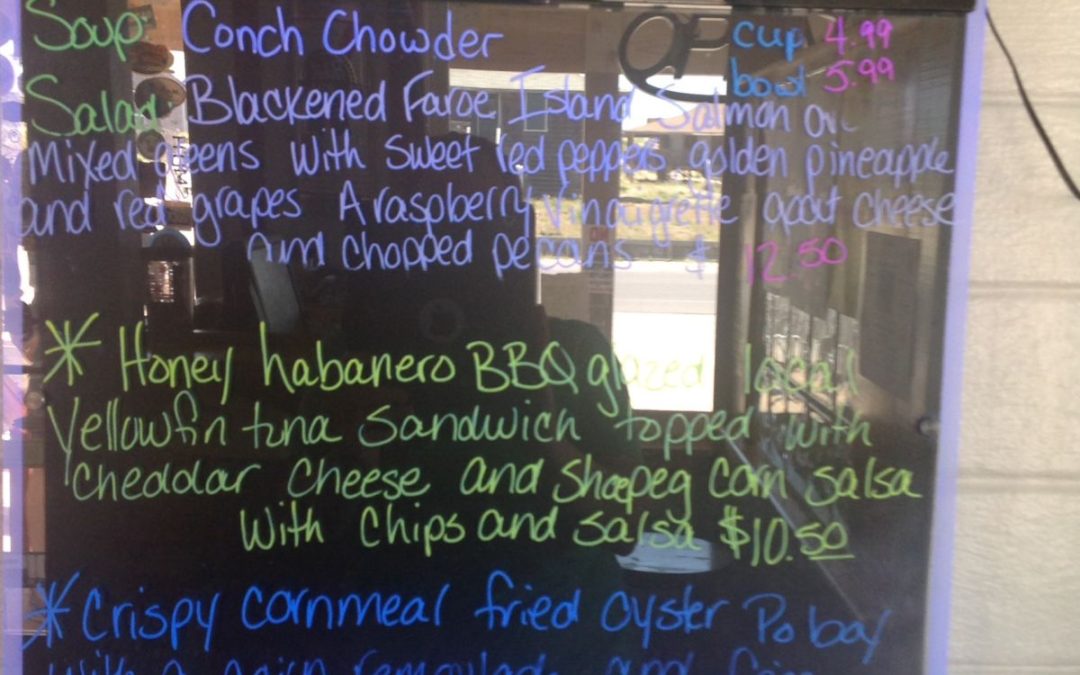 Soup: Conch Chowder cup 4.99
bowl 5.99
Salad: Blackened Faroe Island Salmon on
Mixed greens with sweet red peppers golden pineapple
and red grapes A raspberry Vinaigrette goat cheese
and chopped pecans $12.50
* Honey habanero BBQ glazed local
Yellowfin tuna sandwich topped with
cheddar cheese and shoepeg corn salsa
with chips and salsa $10.50
* Crispy cornmeal fried oyster Po boy
with a and